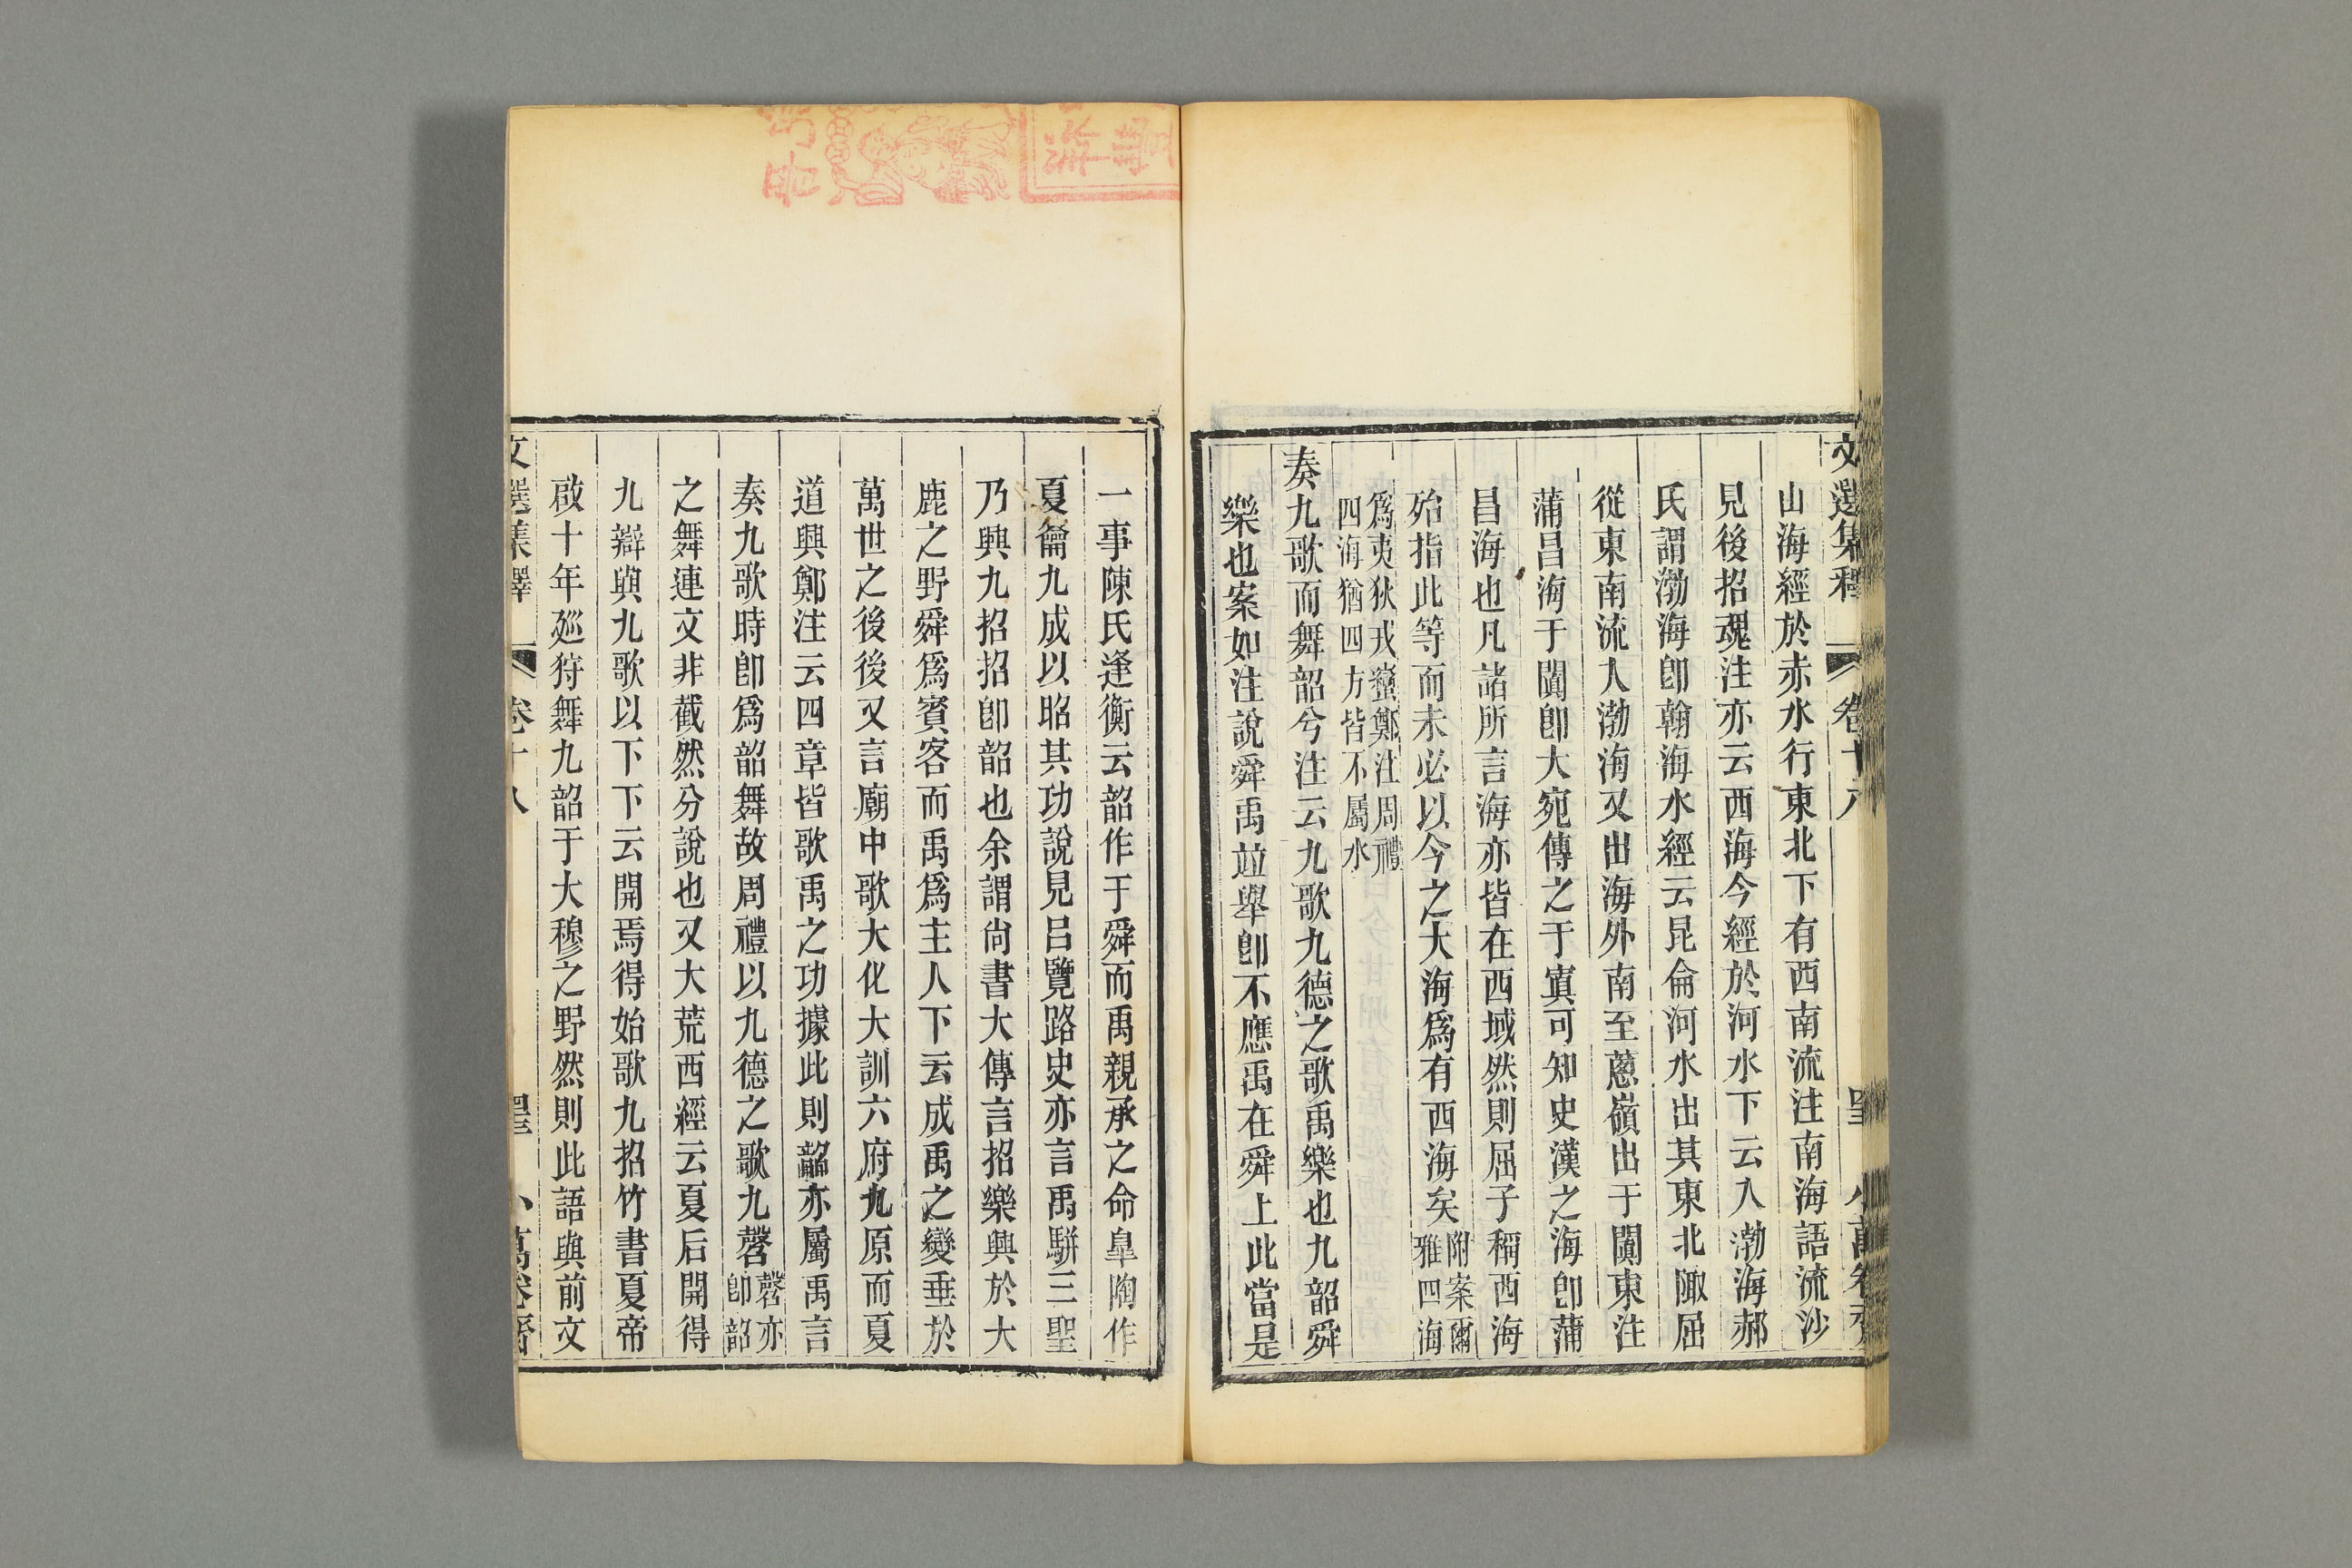 文選集釋 卷十八 小萬卷齋
山海經於赤水行東北下有西南流注南海語流沙
見後招魂注亦云西海今經於河水下云入渤海郝
氏謂渤海卽翰海水經云昆侖河水出其東北陬屈
從東南流入渤海又出海外南至蔥嶺出于闐東注
蒲昌海于闐卽大宛傳之于窴可知史漢之海卽蒲
昌海也凡諸所言海亦皆在西域然則屈子稱西海
殆指此等而未必以今之大海爲有西海矣附案爾雅四海
爲夷狄戎蠻鄭注周禮四海猶四方皆不屬水
奏九歌而舞韶兮注云九歌九德之歌禹樂也九韶舜
樂也案如注說舜禹竝舉卽不應禹在舜上此當是
一事陳氏逢衡云韶作于舜而禹親承之命皐陶作
夏籥九成以昭其功說見呂覽路史亦言禹駢三聖
乃興九招招卽韶也余謂尚書大傳言招樂興於大
鹿之野舜爲賓客而禹爲主人下云成禹之變垂於
萬世之後後又言廟中歌大化大訓六府九原而夏
道興鄭注云四章皆歌禹之功據此則韶亦屬禹言
奏九歌時卽爲韶舞故周禮以九德之歌九㲈㲈亦卽韶
之舞連文非截然分說也又大荒西經云夏后開得
九辯與九歌以下下云開焉得始歌九招竹書夏帝
啟十年廵狩舞九韶于大穆之野然則此語與前文
文選集釋 卷十八 萬卷齋